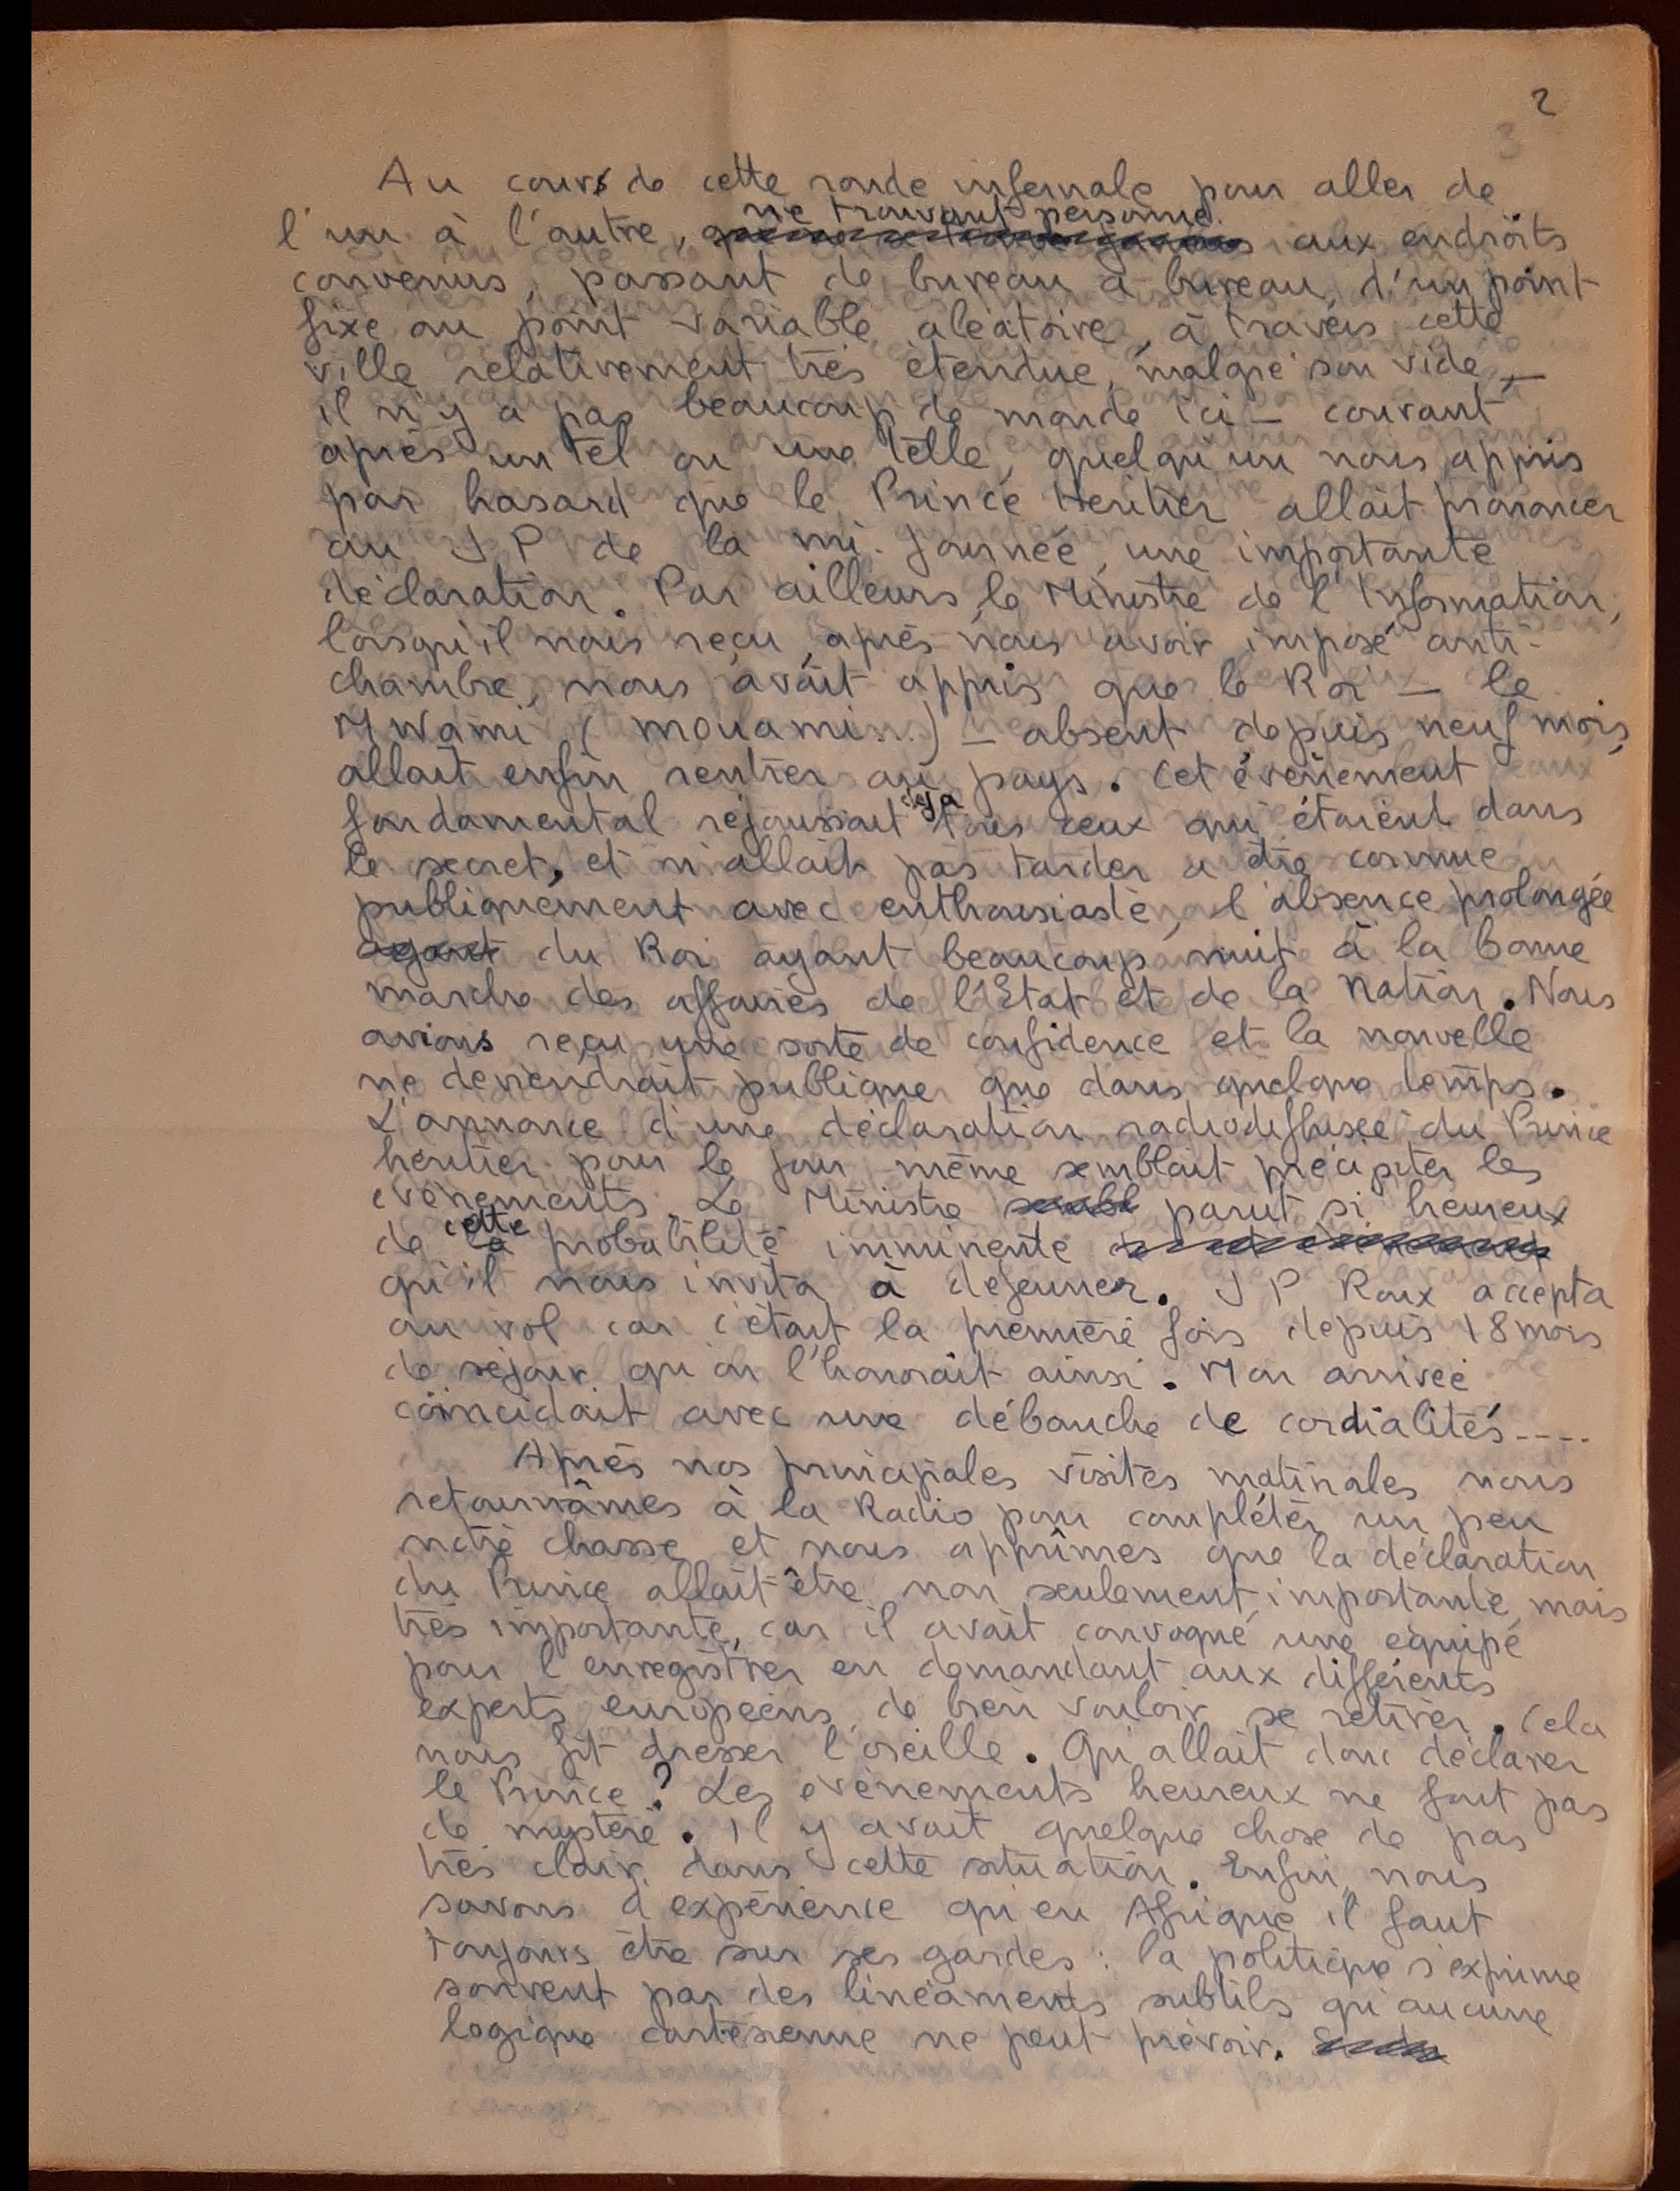 2
3
Au cours de cette ronde infernale pour aller de
ne trouvant personne
l'un à l'autre, aux endroits
convenus, passant de bureau à bureau, d'un point
fixe au point variable aléatoire, à travers cette
ville relativement très étendue, malgré son vide, —
il n'y a pas beaucoup de monde ici — courant
après un tel ou une telle, quelqu'un nous appris
par hasard que le Prince Héritier allait prononcer
au J P de la mi-journée, une importante
déclaration. Par ailleurs, le Ministre de l'Information,
lorsqu'il nous reçu, après nous avoir imposé anti-
chambre, nous avait appris que le Roi — le
Mwami (mouami...) — absent depuis neuf mois,
allait enfin rentrer au pays. Cet évènement
fondamental réjouissait déjà tous ceux qui étaient dans
le secret, et n'allait pas tarder à être connue
publiquement avec enthousiaste, l'absence prolongée
ayant du Roi ayant beaucoup nuit à la bonne
marche des affaires de l'Etat et de la Nation. Nous
avions reçu une sorte de confidence et la nouvelle
ne deviendrait publique que dans quelque temps.
L'annonce d'une déclaration radiodiffusée du Prince
héritier pour le jour même semblait précipiter les
évènements. Le Ministre sembl parut si heureux
de la cette probabilité imminente
qu'il nous invita à déjeuner. J P Roux accepta
au vol car c'était la première fois depuis 18 mois
de séjour qu'on l'honorait ainsi. Mon arrivée
coïncidait avec une débauche de cordialités----
Après nos principales visites matinales nous
retournâmes à la Radio pour compléter un peu
notre chasse et nous apprîmes que la déclaration
du Prince allait être non seulement importante, mais
très importante, car il avait convoqué une équipe
pour l'enregistrer en demandant aux différents
experts européens de bien vouloir se retirer. Cela
nous fit dresser l'oreille. Qu'allait donc déclarer
le Prince ? Les évènements heureux ne font pas
de mystère. Il y avait quelque chose de pas
très clair dans cette situation. Enfin, nous
savons d'expérience qu'en Afrique il faut
toujours être sur ses gardes : la politique s'exprime
souvent par des linéaments subtils qu'aucune
logique cartésienne ne peut prévoir.